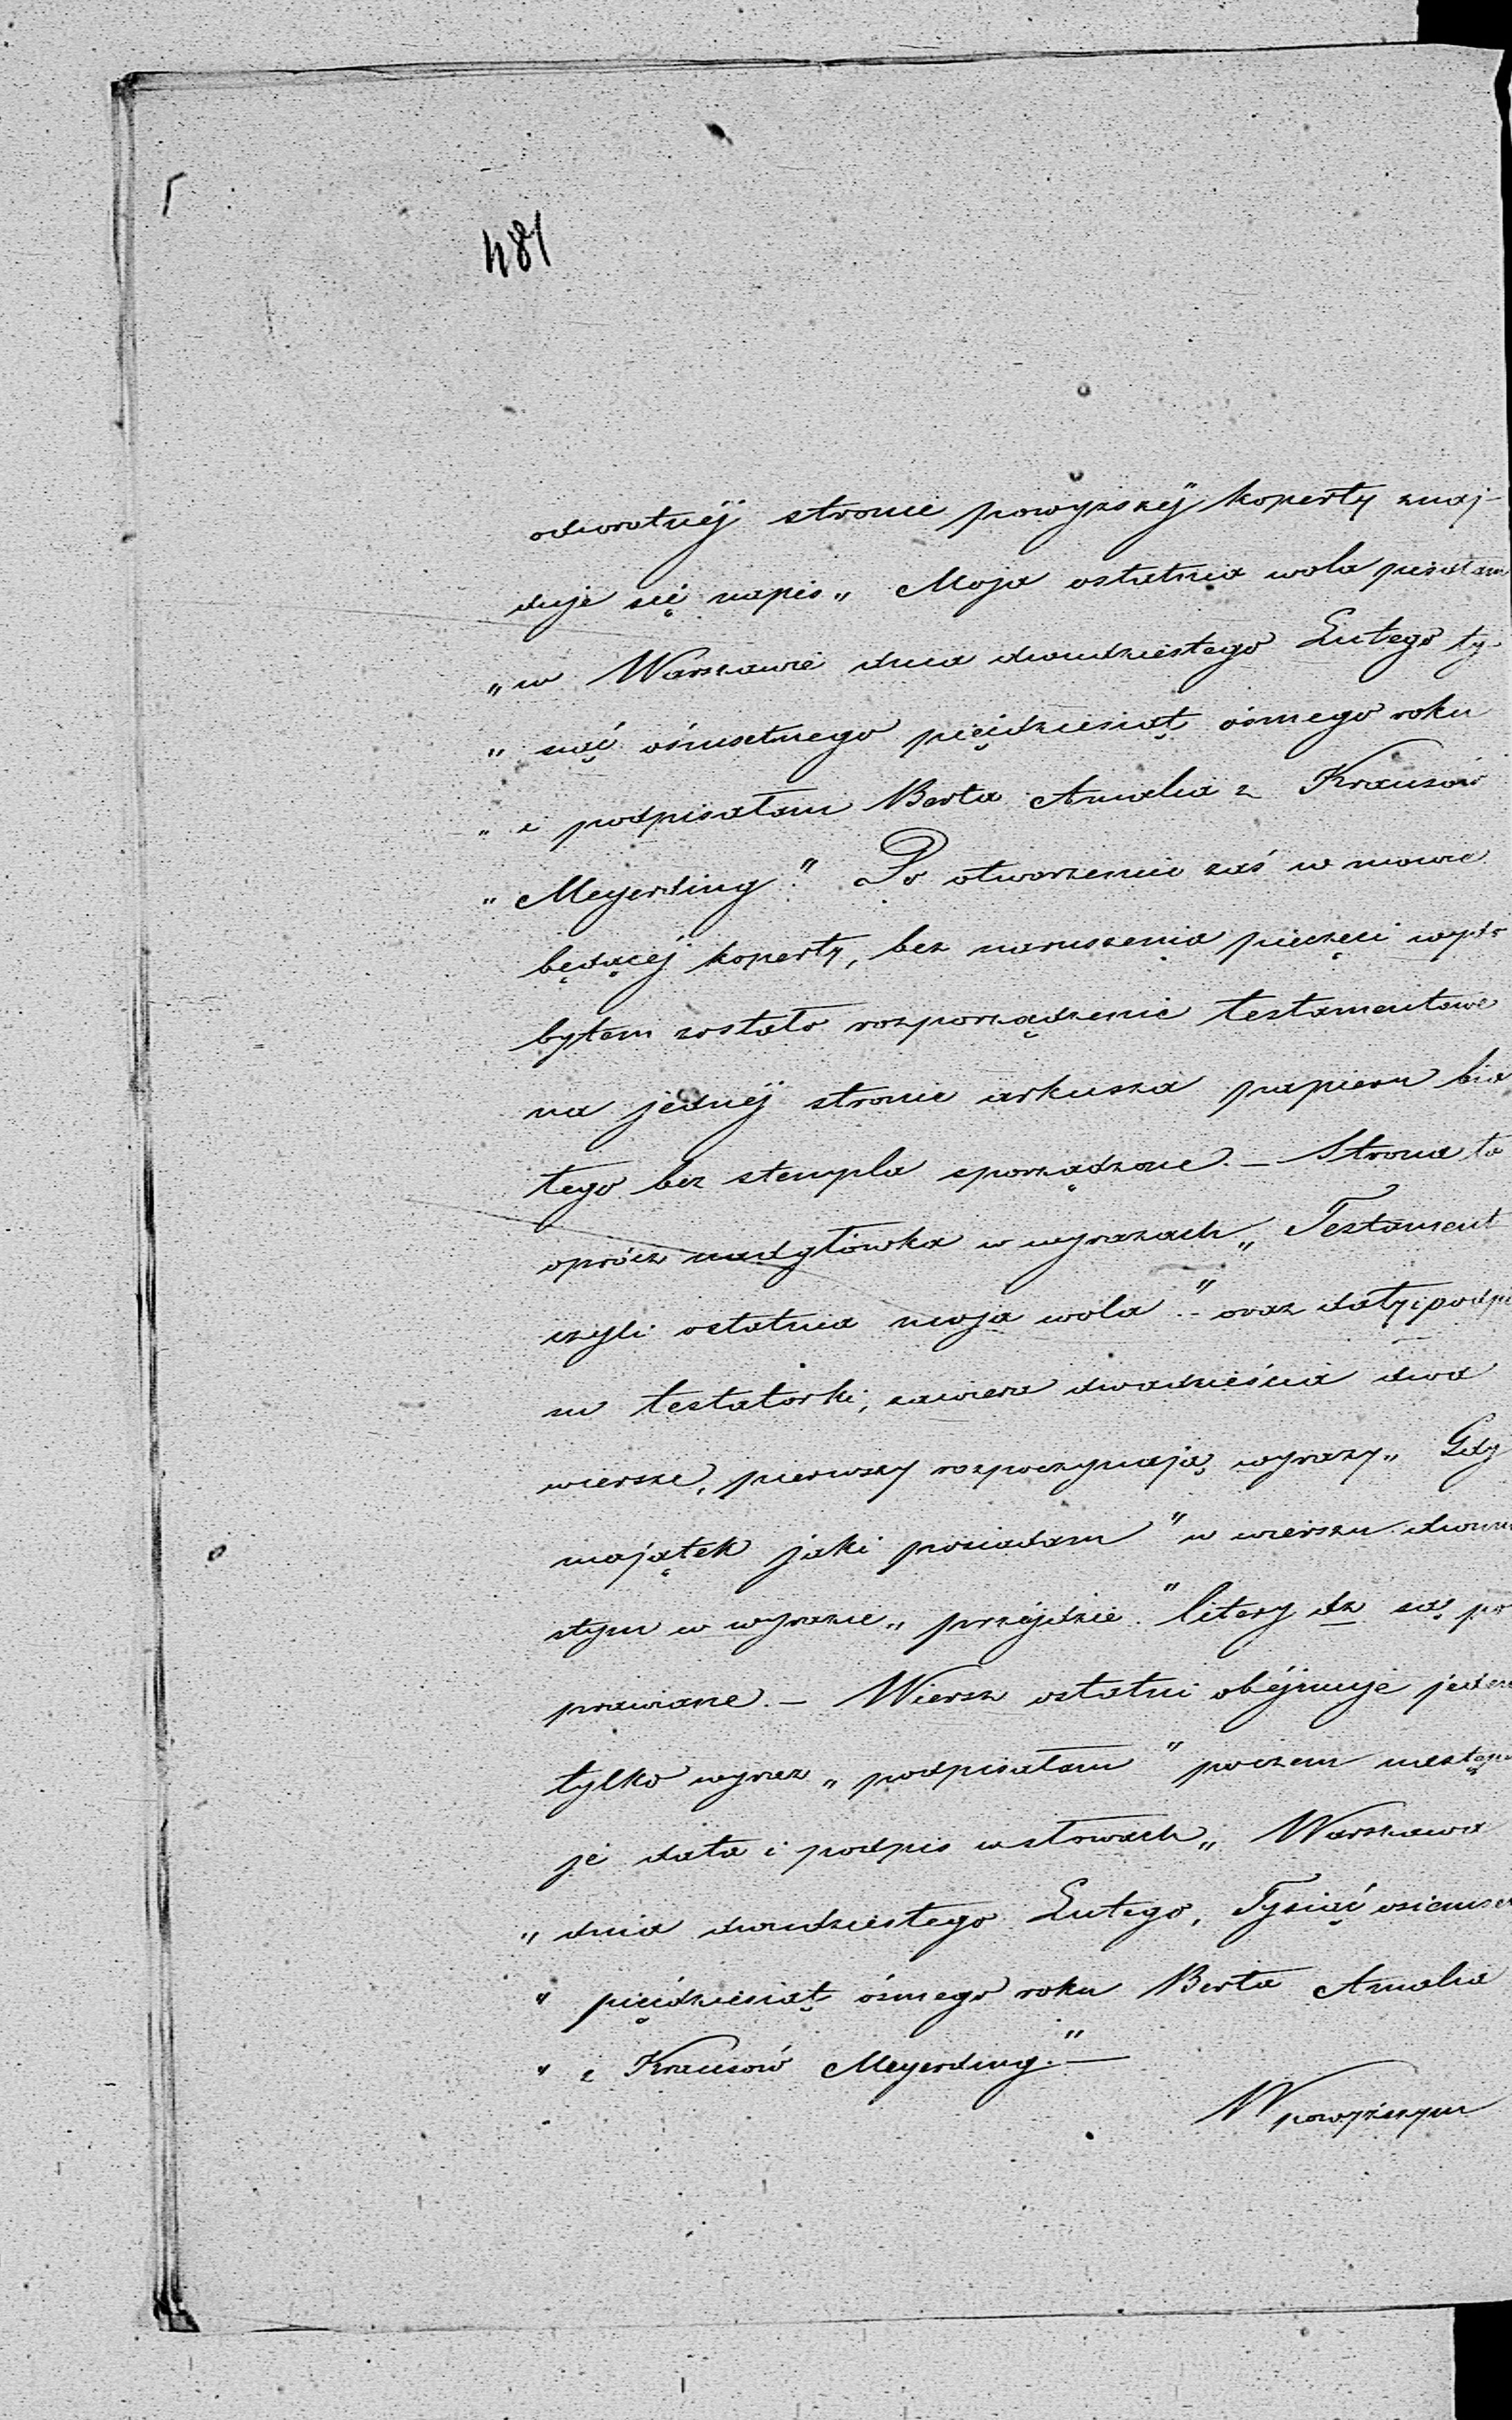 481
odwrotnéj stronie powyzszéj koperty znaj-
duje się napis „ Moja ostatnia wola pisałam
„ w Warszawie dnia dwudziestego Lutego ty-
„ siąć ośmsetnego pięćdziesiąt ósmego roku
„ i podpisałam Berta Amalia z Krauzów
„ Meyerding." Po otworzeniu zaś w mowie
będącéj koperty, bez naruszenia pieczęci wydo
bytem zostało rozporządzenie testamentowe
na jednéj stronie arkusza papieru bia
łego bez stempla sporządzone. — Strona ta
oprócz nadgłówka w wyrazach „ Testament
czyli ostatnia moja wola" — oraz daty i podpi
su testatorki, zawiera dwadzieścia dwa
wiersze, pierwszy rozpoczynają wyrazy „ Gdy
majątek jaki posiadam" w wierszu dwuna
stym w wyrazie „ przéjdzie" litery dz są po
prawiane. — Wiersz ostatni obéjmuje jeden
tylko wyraz „ podpisałam" poczem następu
je data i podpis w słowach „ Warszawa
„ dnia dwudziestego Lutego, Tysiąć osiemset
„ pięćdziesiąt ósmego roku Berta Amalia
„ z Krauzów Meyerding." —
W powyższym